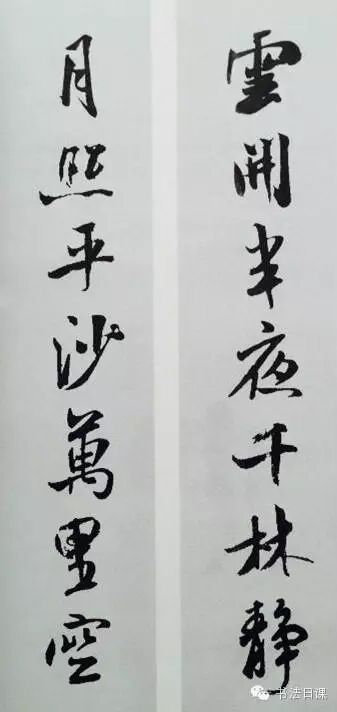 雲開半夜千林靜
月照平沙萬里空
书法日课